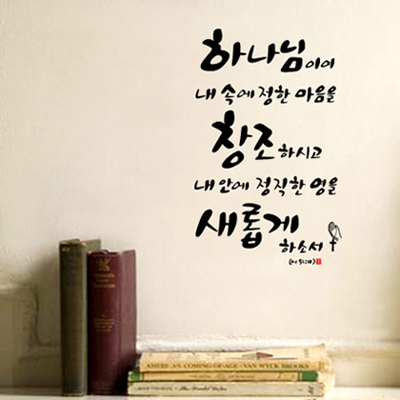 하나님이여
내 속에 정한 마음을
창조하시고
내 안에 정직한 영을
새롭게
하소서
AMERICAN COMING-OF-AGE / VAN WYCK BROOKS